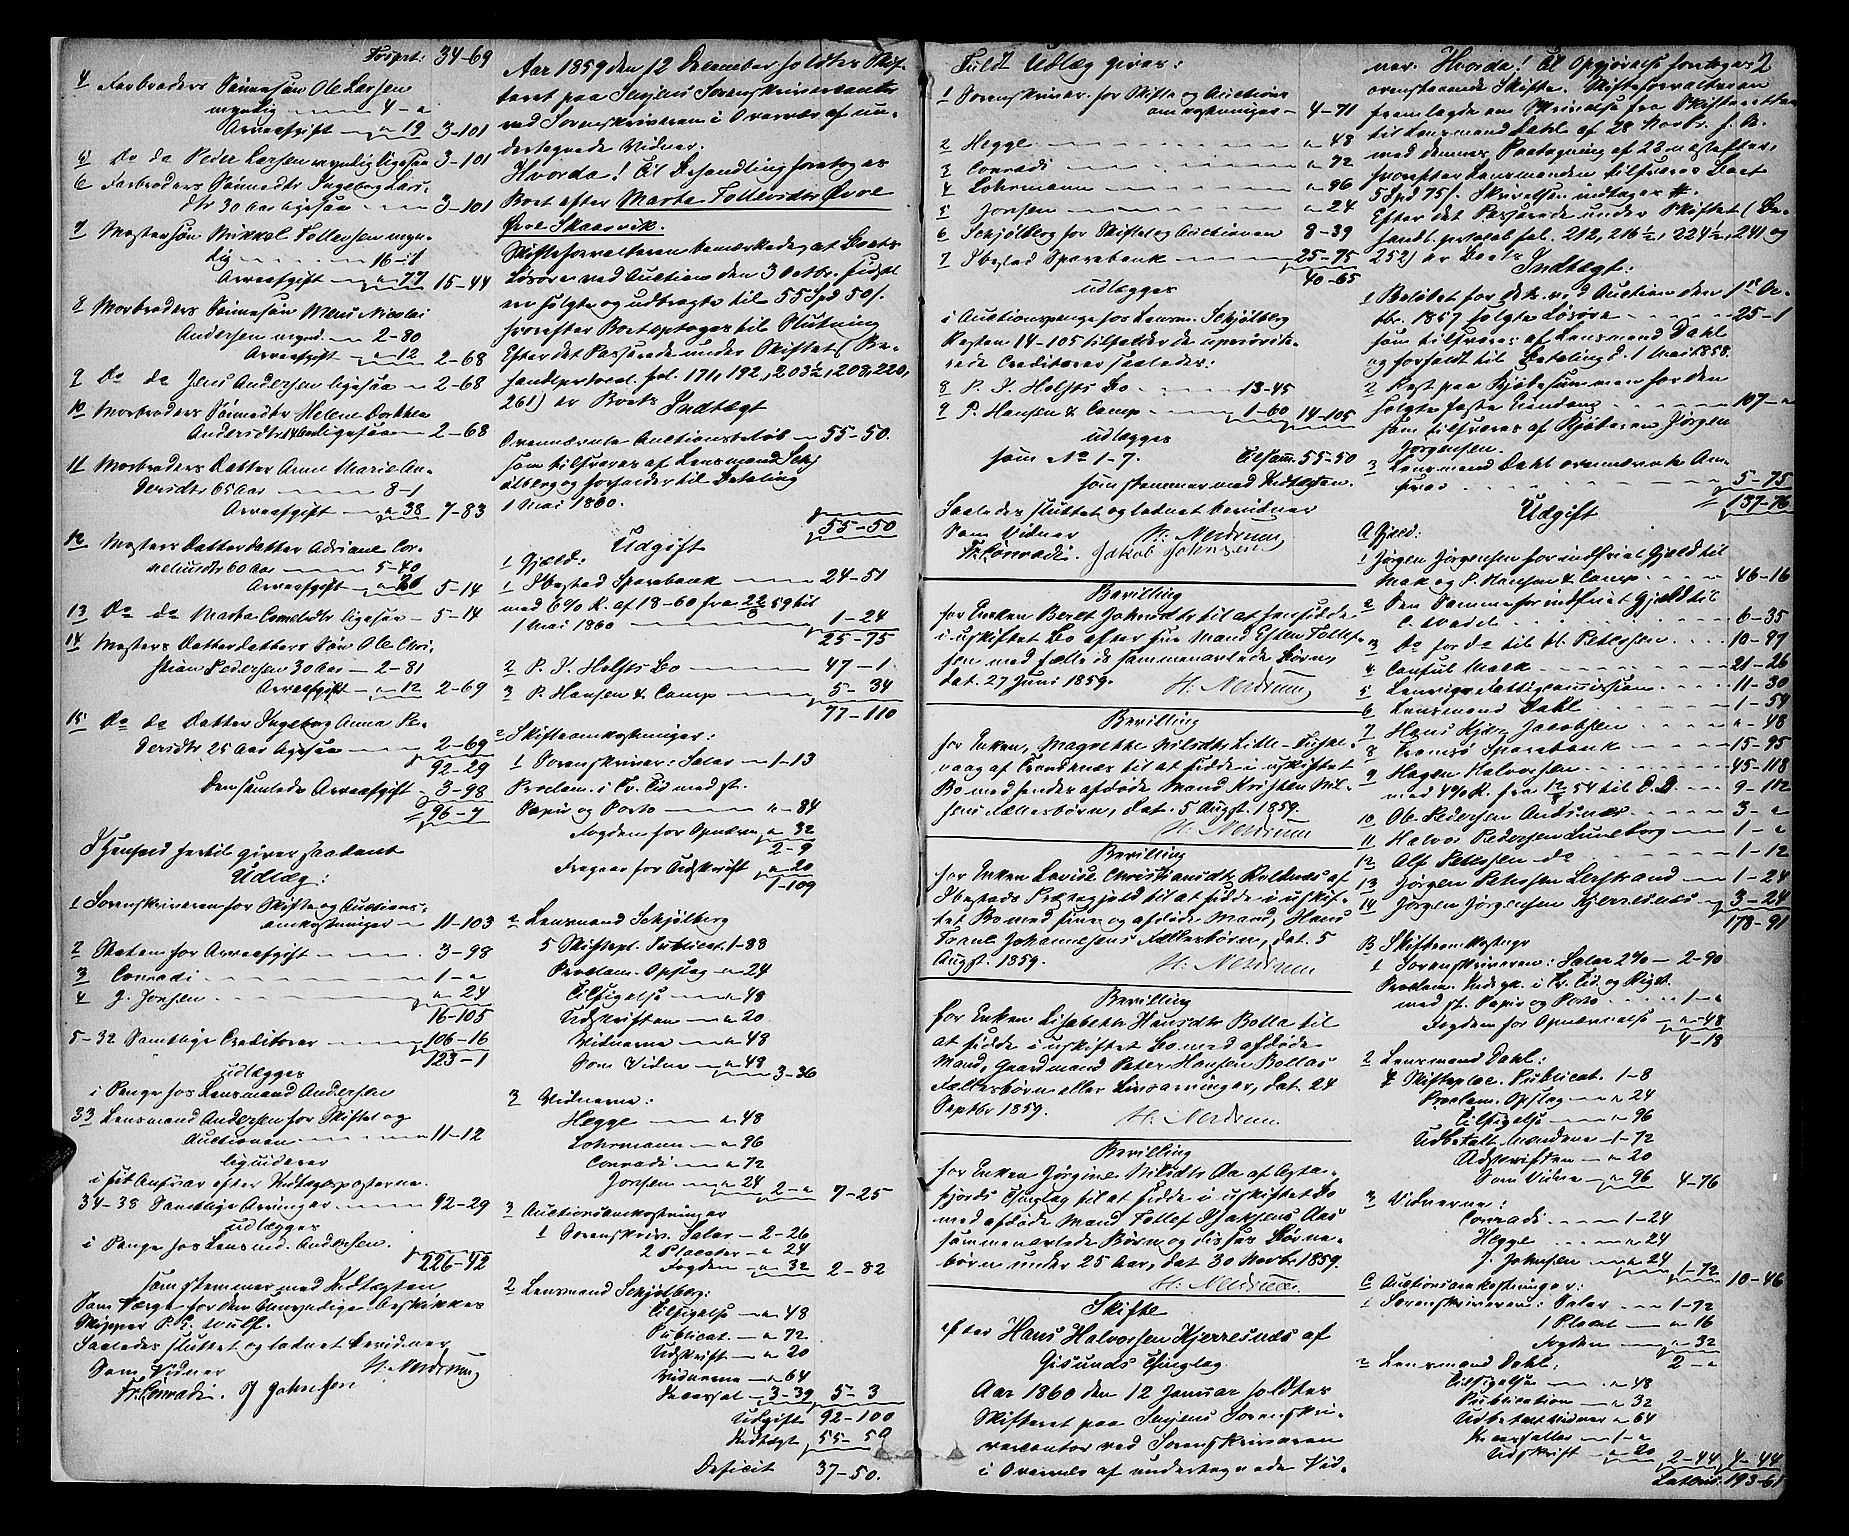 Trspt: 34-69
4 Farbroders Sønnesøn Ole Larsen
myndig — 4-"
Arveafgift — "19 3-101
5 Do do Peder Larsen myndig ligesaa 3-101
6 Farbroders Sønnedtr Ingeborg Lars-
dtr 30 Aar ligesaa — 3-101
7 Mosters Søn Mikkel Tollevsen myn-
dig — 16-1
Arveafgift — "77 15-44
8 Morbroders Sønnesøn Mons Nicolai
Andersen mynd. — 2-80
Arveafgift — "12 2-68
9 Do do Jens Andersen ligesaa — 2-68
10 Morbroders Sønnedtr Helene Dorthea
Andersdtr ligesaa — 2-68
11 Morbroders Datter Anne Marie An-
dersdtr 65 Aar — 8-1
Arveafgift — "38 7-83
12 Mosters Datterdatter Adriane Cor-
neliusdtr 60 Aar — 5-40
Arveafgift — 5-14
13 Do do Martha Corneliidtr ligesaa — 5-14
14 Mosters Datterdatters Søn Ole Chri-
stian Pedersen 30 Aar — 2-81
Arveafgift — "12 2-69
15 Do do Datter Ingeborg Anna Pe-
dersdtr 25 Aar ligesaa — 2-69
92-29
Den samlede Arveafgift — 3-98
96-7
I Henhold hertil giver saadant
Udlæg:
1 Sorenskriveren for Skifte og Auctions-
omkostninger — 11-103
2 Staten for Arveafgift — 3-98
3 Conradi — 1-"
4 J. Jonsen — "24
16-105
5-32 Samtlige Creditorer — 106-16
123-1
udlægges
i Penge hos Lensmand Andersen
33 Lensmand Andersen for Skiftet og
Auctionen — 11-12
liqviderer
i sit Ansvar efter Indtægtsposterne.
34-38 Samtlige Arvinger — 92-29
udlægges
i Penge hos Lensmd. Andersen.
226-42
som stemmer med Indtægten
Som Værge for den Umyndige beskikkes
Skipper P. C. Wulff.
Saaledes sluttet og ladnet bevidner
Som Vidner H. Nerdrum
Fr. Conradi. J Johnsen
Aar 1859 den 12 December holdtes Skif-
teret paa Senjens Sorenskrivercontor
ved Sorenskriveren i Overvær af un-
dertegnede Vidner.
Hvorda! Til Behandling foretoges
Boet efter Marte Tollevsdtr Øvre
Øvre Skaarvik.
Skifteforvalteren bemærkede, at Boets
Løsøre ved Auction den 3 Octbr. sidstl
er solgte og udbragte til 55 Spd 50 s.
hvorefter Boet optoges til Slutning
Efter det Passerede under Skiftet (Be-
handl.protocol. fol. 171, 192, 203½, 208, 220,
261) er Boets Indtægt
Ovennævnte Auctionsbeløb — 55-50.
som tilsvares af Lensmand Schj
ølberg og forfalder til Betaling
1 Mai 1860.
55-50
Udgift
1 Gjæld:
1 Ibestad Sparebank — 24-51
med 6% R. af 18-60 fra 22/8 59 til
1 Mai 1860 — 1-24
25-75
2 P. I. Holsts Bo — 47-1
3 P. Hansen & Comp — 5-34
77-110
2 Skifteomkostninger:
1 Sorenskriver: Salær — 1-13
Proclam. i Tr. Tid. med st.
Papir og Porto — "84
Fogden for Opnævn "32
2-9
Fragaar for Udskrift "20
1-109
2 Lensmand Schjølberg
5 Skiftepl. Publicat. 1-88
Proclam. Opslag — "24
Tilsigelse — "48
Udskriften — "20
Vidnerne — "48
Som Vidne — "48 3-36
3 Vidnerne:
Hegge — "48
Lohrmann — "96
Conradi — "72
Jonsen — "24 2-" 7-25
3 Auctionsomkostninger
1 Sorenskriv. Salær — 2-26
2 Placater — "24
Fogden — "32 2-82
2 Lensmand Schjølberg:
Tilsigelse — "48
Publicat. — "72
Udskrift — "20
Vidnerne — "64
Incassal — 3-39 5-3
Udgift 92-100
Indtægt 55-50
Deficit 37-50.
Fuldt Udlæg giver:
1 Sorenskriver. for Skifte og Auctions
omkostninger — 4-71
2 Hegge — "48
3 Conradi — "72
4 Lohrmann — "96
5 Jonsen — "24
6 Schjølberg for Skiftet og Auctionen 8-39
7 Ibestad Sparebank — 25-75
40-65
udlægges
i Auctionspenge hos Lensm. Schjølberg
Resten 14-105 tilfalder de upriorite-
rede Creditorer saaledes:
8 P. I. Holsts Bo — 13-45
9 P. Hansen & Comp — 1-60 14-105
udlægges
som No 1-7. Tilsam: 55-50
som stemmer med Indtægten.
Saaledes sluttet og ladnet bevidner
Som Vidner H. Nerdrum
Fr. Conradi. Jakob Johnsen
Bevilling
for Enken Beret Johnsdtr til at henfidde
i uskiftet Bo efter sin Mand Esten Tollef-
sen med fælleds sammenavlede Børn,
dat. 27 Juni 1859. H. Nerdrum
Bevilling
for Enken, Magrethe Nilsdtr Lille-Fiske-
vaag af Trondenæs til at sidde i uskiftet
Bo med hendes afdøde Mand Kristen Nil-
sens Fællesbørn, dat. 5 August 1859.
H. Nerdrum
Bevilling
for Enken Lovise Christiansdtr Rollnæs af
Ibestads Præstegjeld til at sidde i uskif-
tet Bo med sin og afdøde Mand, Hans
Tornl. Johannesens Fællesbørn, dat. 5
Augst. 1859. H. Nerdrum
Bevilling
for Enken Elisabeth Hansdtr Bolla til
at sidde i uskiftet Bo med afdøde
Mand, Gaardmand Peter Hansen Bollas
Fællesbørn eller Livsarvinger, dat. 24
Septbr 1859. H. Nerdrum.
Bevilling
for Enken Jørgine Nilsdtr Aa af Asta-
fjords Thinglag til at sidde i uskiftet Bo
med afdøde Mand Tollef Isaksens Aas
sammenavlede Børn og disses Børne-
børn under 25 Aar, dat 30 Novbr. 1859.
H. Nerdrum.
Skifte
efter Hans Halvorsen Kjerresnæs af
Gisunds Thinglag.
Aar 1860 den 12 Januar holdtes
Skifteret paa Senjens Sorenskri-
vercontor ved Sorenskriveren
i Overvær af undertegnede Vid-
2
ner. Hvorda! Til Opgjørelse foretoges
ovenstaaende Skifte. Skifteforvalteren
fremlagde en Skrivelse fra Skifteretten
til Lensmand Dahl af 28 Novbr. f. A.
med dennes Paategning af 28 næstefter,
hvorefter Lensmanden tilsvarer Boet
5 Spd 75 s. Skrivelsen indtages #.
Efter det Passerede under Skiftet (Be-
handl. protokol fol. 212, 216½, 224½, 241 og
252) er Boets Indtægt:
1 Beløbet for de h. ved Auction den 1ste Oc-
tbr. 1857 solgte Løsøre — 25-1
som tilsvares af Lensmand Dahl
og forfaldt til Betaling d. 1 Mai 1858.
2 Rest paa Kjøbesummen for den
solgte faste Eiendom — 107-"
som tilsvares af Kjøberen Jørgen
Jørgensen.
3 Lensmand Dahl ovennævnte An-
svar — 5-75
137-76
Udgift
A Gjæld:
1 Jørgen Jørgensen for indfriet Gjæld til
Mak og P. Hansen & Comp — 46-16
2 Den Samme for indfriet Gjæld til
C. Wadel — 6-35
3 Do for do til H. Petersen — 10-97
4 Consul Mack — 21-26
5 Lenvigs Fattigcommission — 11-30
6 Lensmand Dahl — 1-54
7 Hans Kjær Jacobsen — "48
8 Tromsø Sparebank — 15-95
9 Hagen Halvorsen — 45-118
med 4% R. fra 54 til D.D. — 9-112
10 Ole Pedersen — 3-"
11 Halvor Pedersen — 1-"
12 Alf Petersen do — 1-12
13 Jørgen Petersen Lerstrand — 1-24
14 Jørgen Jørgensen Kjerresnæs — 3-24
178-91
B Skifteomkostngr
1 Sorenskriveren: Salær 2% — 2-90
Proclam. Indryk. i Tr. Tid. og Rigst.
med st. Papir og Porto — 1-"
Fogden for Opnævnelse — "48
4-18
2 Lensmand Dahl:
7 Skifteplac. Publicat. 1-8
Proclam. Opslag — "24
Tilsigelse — "96
Udbetalt Mændene — 1-72
Udskriften — "20
Som Vidne — "96 4-76
3 Vidnerne:
Conradi — 1-24
Hegge — "24
J. Johnsen — "24
1-72 10-46
C Auctionsomkostninger:
1 Sorenskriveren: Salær — 1-72
1 Placat — "16
Fogden — "32
2-"
2 Lensmand Dahl:
Tilsigelse — "48
Publication — "32
Udbetalt Vidner "64
Incassaller — 1-"
Udskrift — "20 2-44 4-44
Latus: 193-61